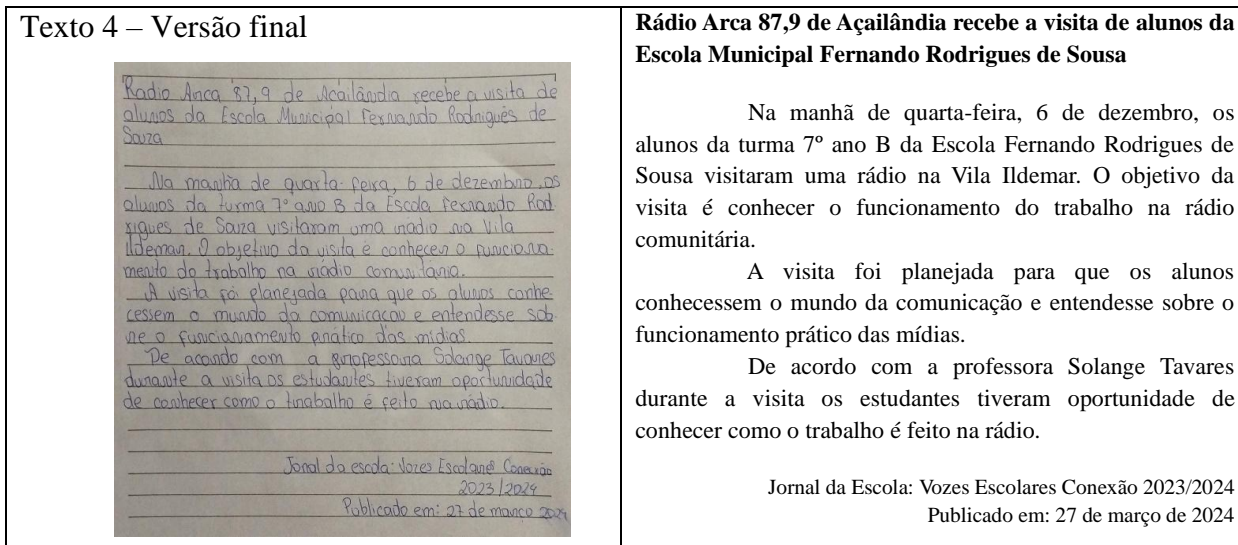 Texto 4 – Versão final
Radio Arca 87,9 de Açailândia recebe a visita de
alunos da Escola Municipal Fernando Rodrigues de
Souza
Na manhã de quarta-feira, 6 de dezembro, os
alunos da turma 7º ano B da Escola Fernando Rod
rigues de Souza visitaram uma rádio na Vila
Ildemar. O objetivo da visita é conhecer o funciona-
mento do trabalho na rádio comunitária.
A visita foi planejada para que os alunos conhe
cessem o mundo da comunicação e entendesse sob
re o funcionamento prático das mídias.
De acordo com a professora Solange Tavares
durante a visita os estudantes tiveram oportunidade
de conhecer como o trabalho é feito na rádio.
Jonal da escola: Vozes Escolares Conexão
2023/2024
Públicado em: 27 de março 2024
Rádio Arca 87,9 de Açailândia recebe a visita de alunos da
Escola Municipal Fernando Rodrigues de Sousa
Na manhã de quarta-feira, 6 de dezembro, os
alunos da turma 7º ano B da Escola Fernando Rodrigues de
Sousa visitaram uma rádio na Vila Ildemar. O objetivo da
visita é conhecer o funcionamento do trabalho na rádio
comunitária.
A visita foi planejada para que os alunos
conhecessem o mundo da comunicação e entendesse sobre o
funcionamento prático das mídias.
De acordo com a professora Solange Tavares
durante a visita os estudantes tiveram oportunidade de
conhecer como o trabalho é feito na rádio.
Jornal da Escola: Vozes Escolares Conexão 2023/2024
Publicado em: 27 de março de 2024